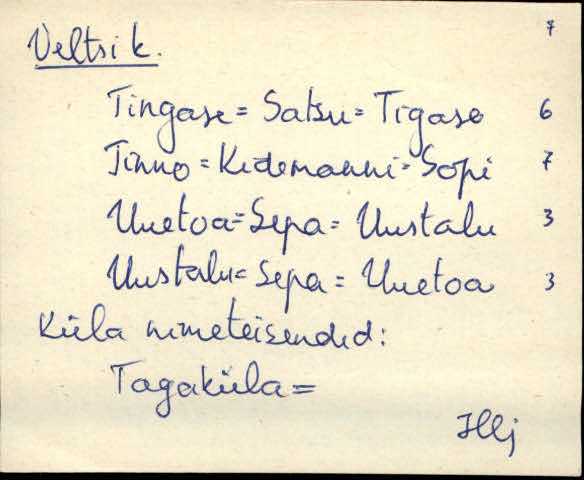 7
Veltsi k.
Tingase = Satsu = Tigase 6
Tinno = Kidemanni = Sopi 7
Uuetoa = Sepa = Uustalu 3
Uustalu = Sepa = Uuetoa 3
Küla nimeteisendid:
Tagaküla =